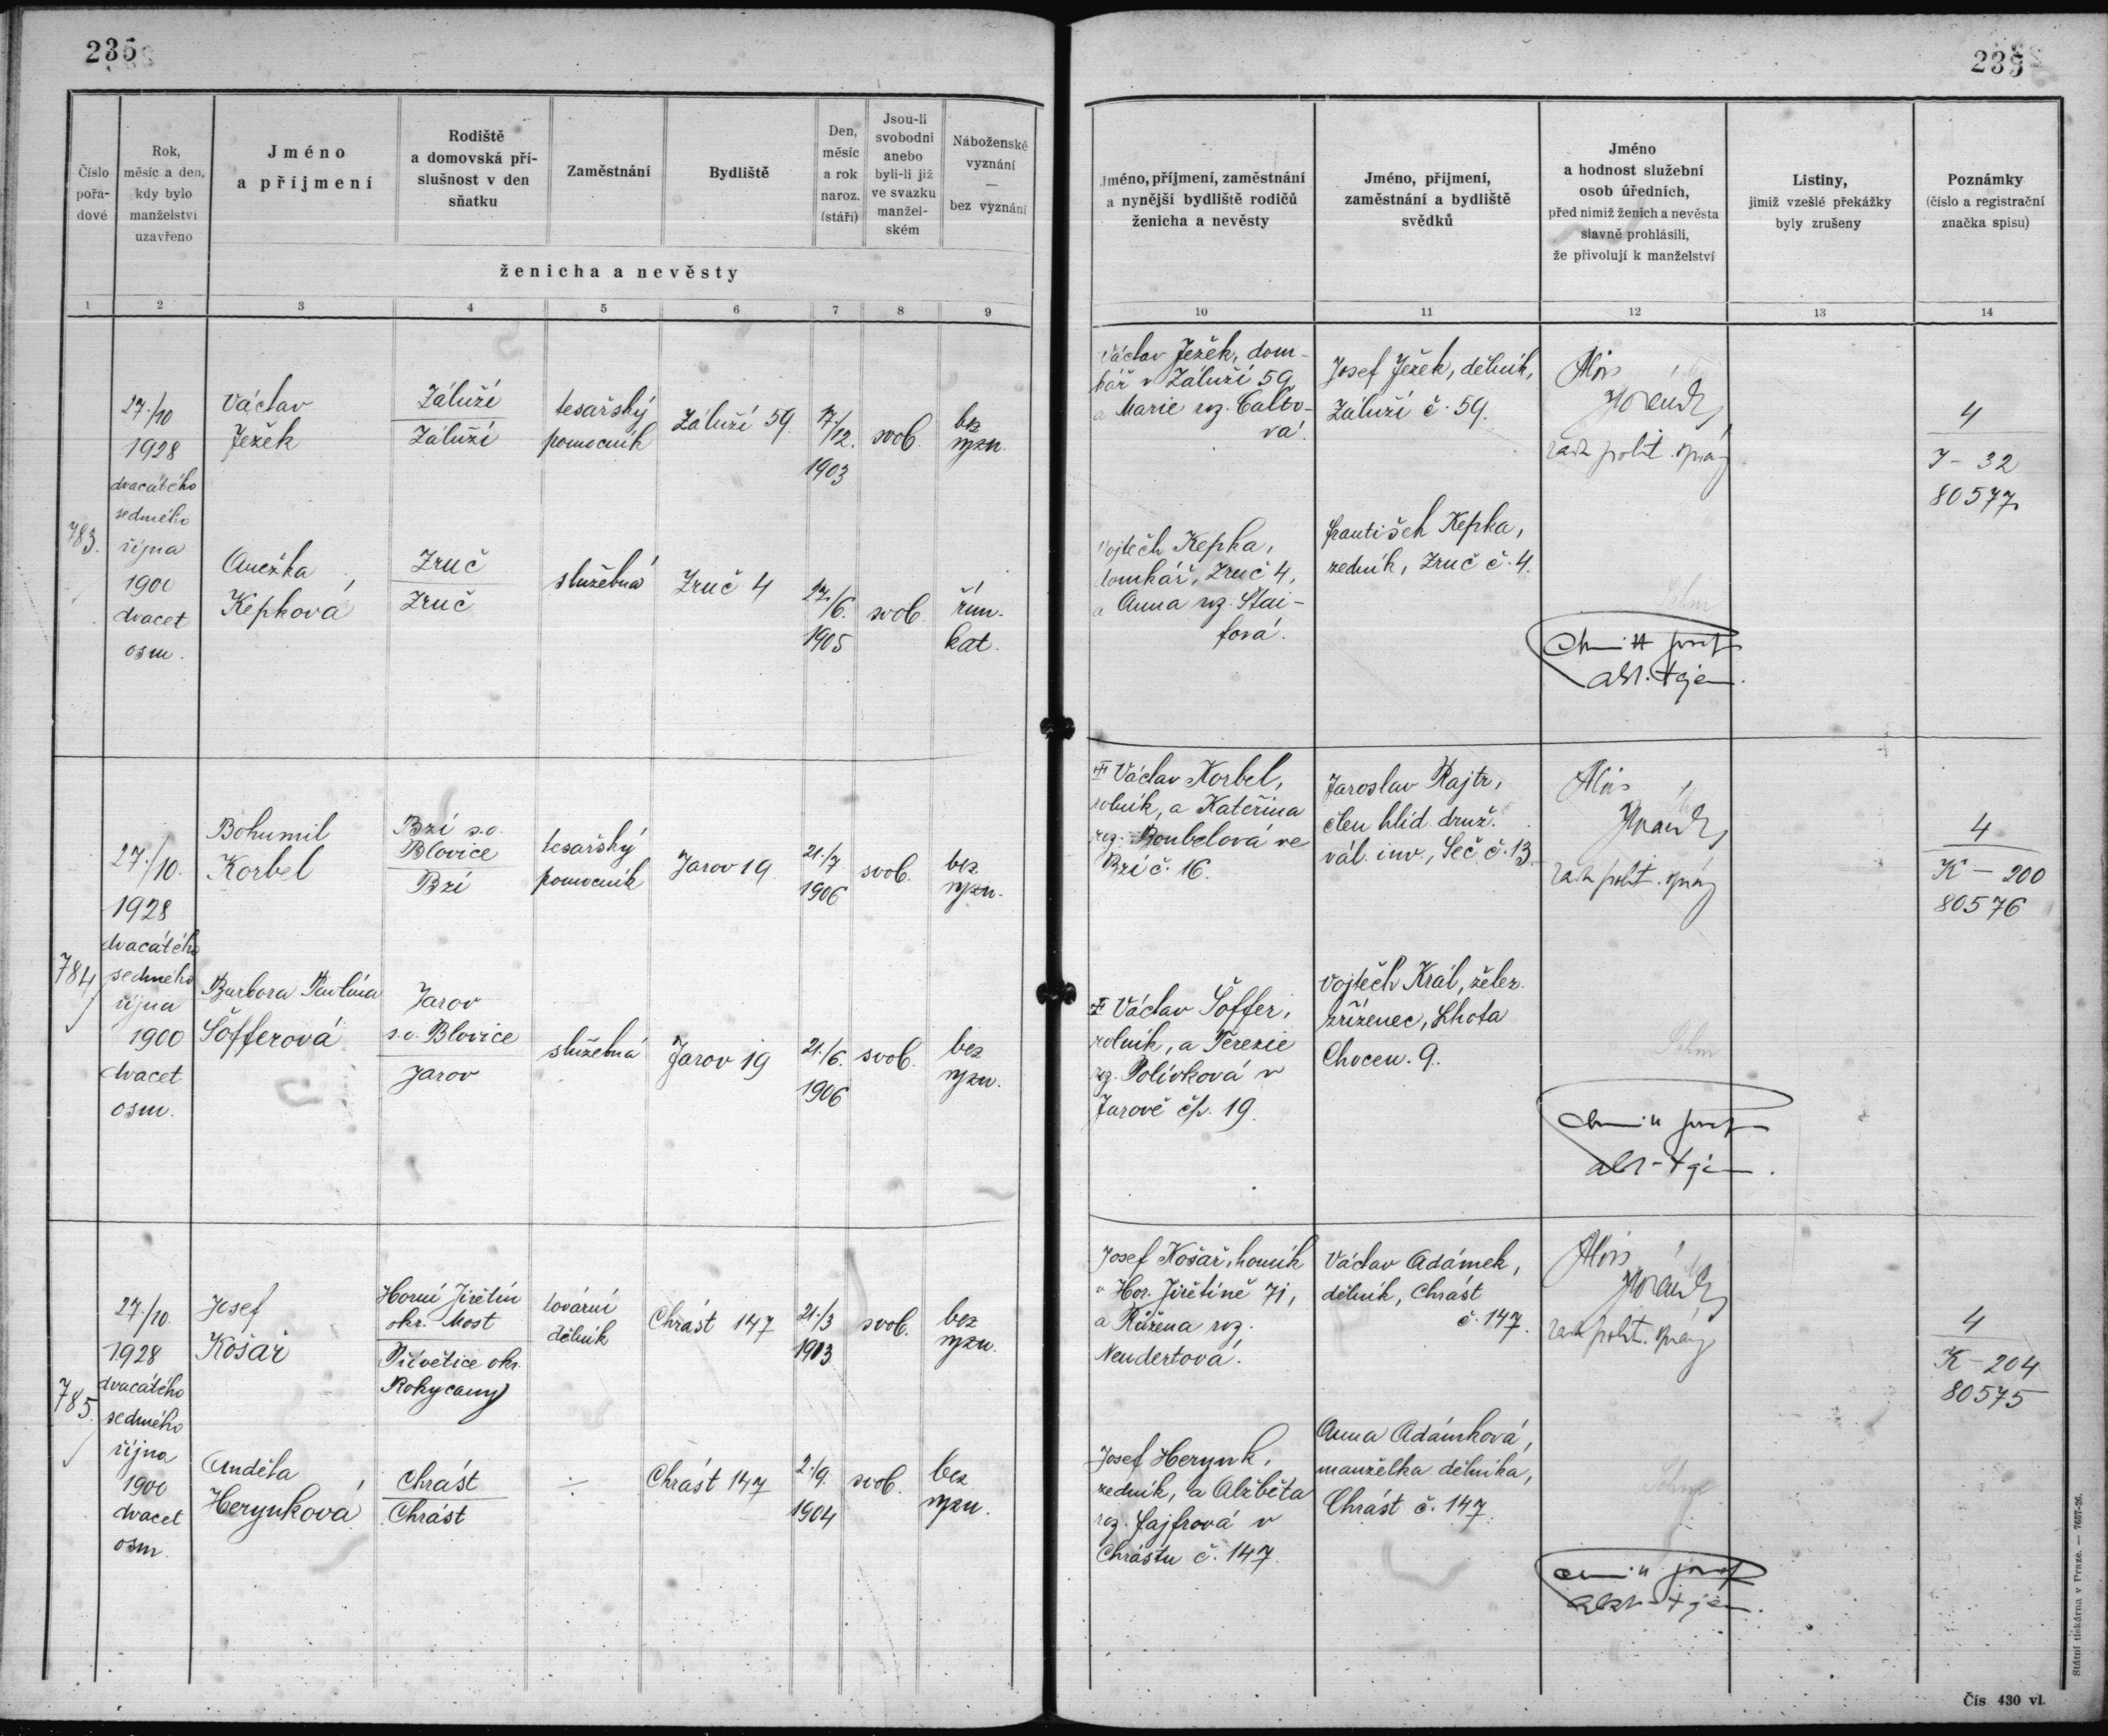 235
235
Číslo pořa-dové
Rok, měsíc a den, kdy bylo manželství uzavřeno
Jméno a příjmení
Rodiště a domovská pří-slušnost v den sňatku
Zaměstnání
Bydliště
Den, měsíc a rok naroz. (stáří)
Jsou-li svobodni anebo byli-li již ve svazku manžel-ském
Náboženské vyznání — bez vyznání
ženicha a nevěsty
Jméno, příjmení, zaměstnání a nynější bydliště rodičů ženicha a nevěsty
Jméno, příjmení, zaměstnání a bydliště svědků
Jméno a hodnost služební osob úředních, před nimiž ženich a nevěsta slavně prohlásili, že přivolují k manželství
Listiny, jimiž vzešlé překážky byly zrušeny
Poznámky (číslo a registrační značka spisu)
1 2 3 4 5 6 7 8 9 10 11 12 13 14
783.
27./10
1928
dvacátého
sedmého
října
1900
dvacet
osm.
Václav
Ježek
Záluží
Záluží
tesařský
pomocník
Záluží 59
17./12.
1903
svob.
bez
vyzn.
Václav Ježek, dom-
kář v Záluží 59
a Marie roz. Calto-
vá.
Josef Ježek, dělník,
Záluží č. 59.
Alois
rada polit. správy
4
J - 32
80577
Anežka
Kepková
Zruč
Zruč
služebná
Zruč 4
17./6.
1905
svob.
řím.
kat.
Vojtěch Kepka,
domkář, Zruč 4,
a Anna roz. Stai-
fová.
František Kepka,
zedník, Zruč č. 4.
784
27./10.
1928
dvacátého
sedmého
října
1900
dvacet
osm.
Bohumil
Korbel
Bzí s.o.
Blovice
Bzí
tesařský
pomocník
Jarov 19
21./7.
1906
svob.
bez
vyzn.
Václav Korbel,
rolník, a Kateřina
roz. Boubelová ve
Bzí č. 16.
Jaroslav Rajtr,
člen hlíd. druž.
vál. inv., Seč č. 13.
Alois
rada polit. správy
4
K - 200
80576
Barbora Pavlína
Šöfferová
Jarov
s.o. Blovice
Jarov
služebná
Jarov 19
21./6.
1906
svob.
bez
vyzn.
Václav Šöffer,
rolník, a Terezie
roz. Polívková v
Jarově čp. 19.
Vojtěch Král, želez.
zřízenec, Lhota
Chocen. 9.
785.
27./10.
1928
dvacátého
sedmého
října
1900
dvacet
osm
Josef
Košař
Horní Jiřetín
okr. Most
Přívětice okr.
Rokycany
tovární
dělník
Chrást 147
21./3
1903
svob.
bez
vyzn.
Josef Košař, horník
v Hor. Jiřetíně 71,
a Růžena roz.
Neudertová.
Václav Adámek,
dělník, Chrást
č. 147.
Alois
rada polit. správy
4
K - 204
80575
Anděla
Herynková
Chrást
Chrást
÷
Chrást 147
2./9.
1904
svob.
bez
vyzn.
Josef Herynk,
zedník, a Alžběta
roz. Fajfrová v
Chrástu č. 147.
Anna Adámková,
manželka dělníka,
Chrást č. 147.
Státní tiskárna v Praze. — 7657-26.
Čís 430 vl.